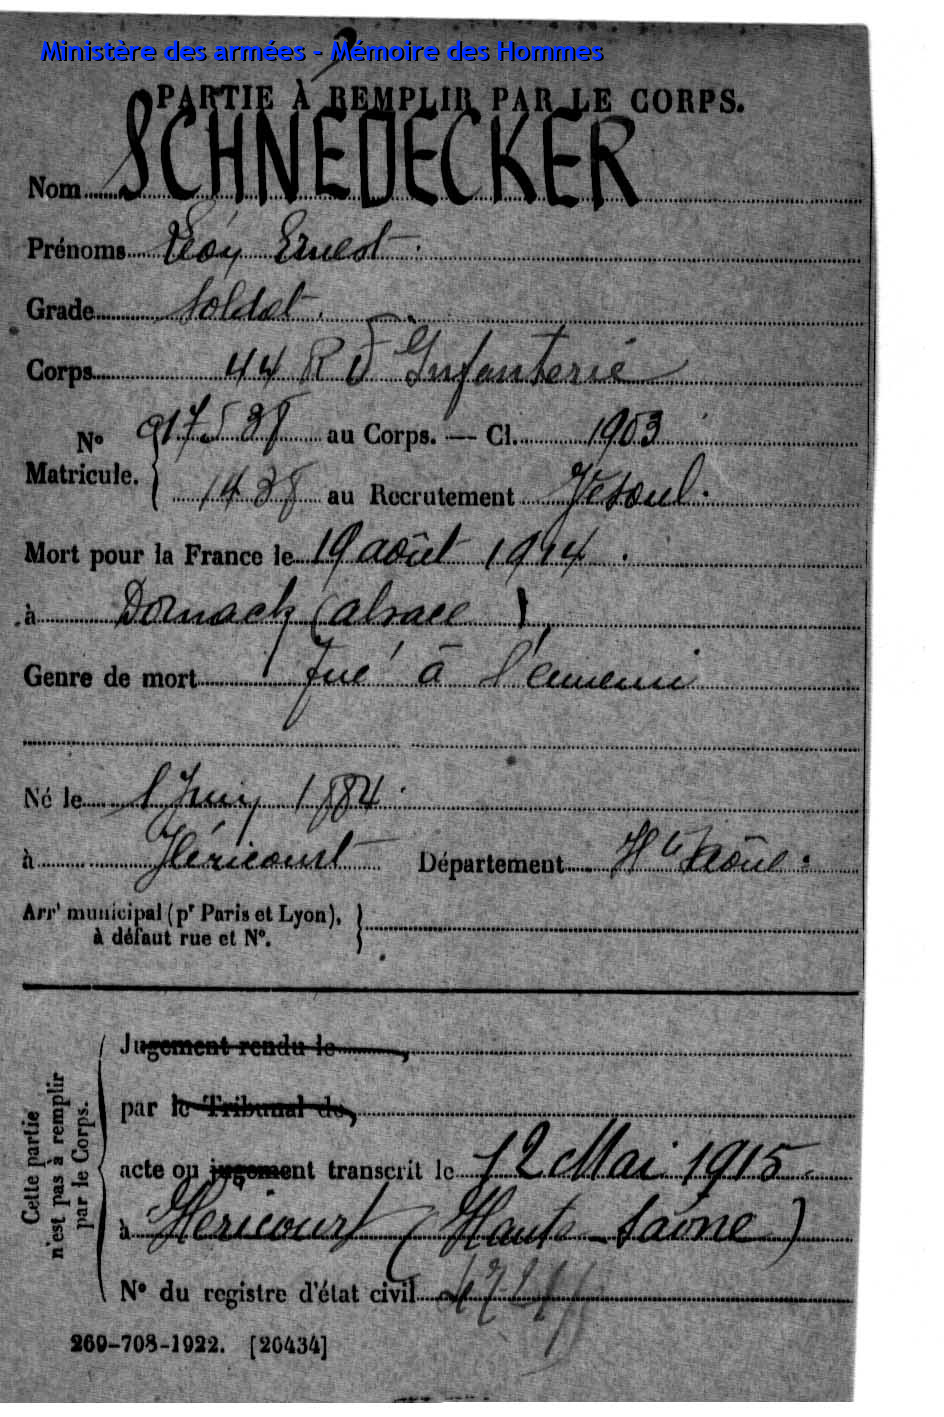 Ministère des armées - Mémoire des Hommes
PARTIE À REMPLIR PAR LE CORPS.
Nom SCHNEDECKER
Prénoms Léon Ernest
Grade Soldat.
Corps 44 R d' Infanterie
N° 017538 au Corps. — Cl. 1903
Matricule. 1438 au Recrutement Vesoul.
Mort pour la France le 19 août 1914.
à Dornach (alsace)
Genre de mort Tué à l'ennemi
Né le 1 Juin 1884.
à Héricourt Département Hte Saône.
Arrt municipal (pr Paris et Lyon),
à défaut rue et N°.
Cette partie
n'est pas à remplir
par le Corps.
Jugement rendu le
par le Tribunal de
acte ou jugement transcrit le 12 Mai 1915.
à Héricourt (Haute-Saône)
N° du registre d'état civil
269-708-1922. [26434]